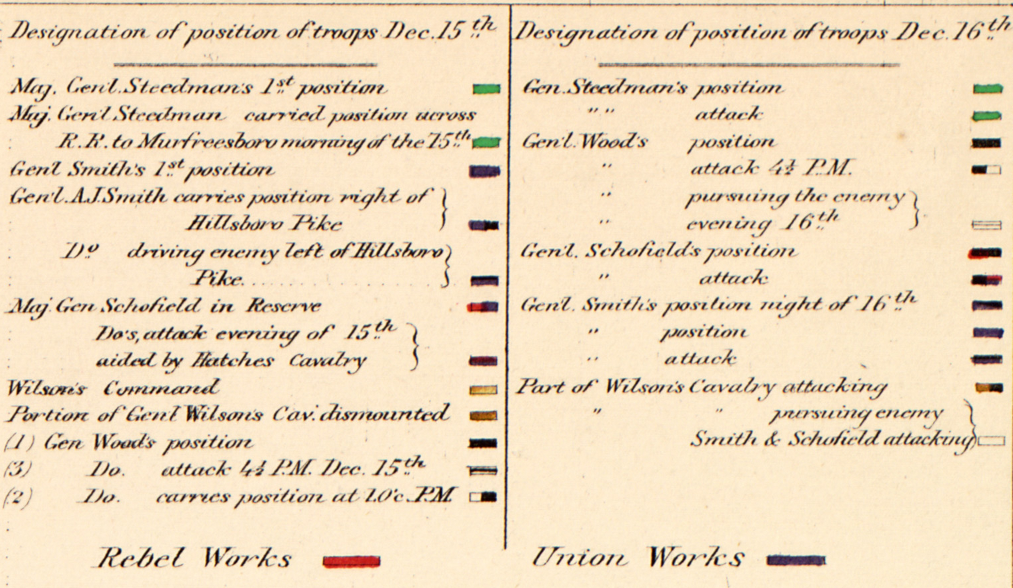 Designation of position of troops Dec. 15th
Maj. Gen'l. Steedman's 1st position
Maj. Gen'l Steedman carried position across
R.R. to Murfreesboro morning of the 15th
Gen'l Smith's 1st position
Gen'l. A.J. Smith carries position right of
Hillsboro Pike
Do driving enemy left of Hillsboro
Pike
Maj. Gen Schofield in Reserve
Do's, attack evening of 15th
aided by Hatches Cavalry
Wilson's Command
Portion of Gen'l Wilson's Cav. dismounted
(1) Gen Wood's position
(3) Do. attack 4½ P.M. Dec. 15th
(2) Do. carries position at 1.0'c. P.M.
Rebel Works
Designation of position of troops Dec. 16th
Gen. Steedman's position
" " attack
Gen'l. Wood's position
" attack 4½ P.M.
" pursuing the enemy
" evening 16th
Gen'l. Schofield's position
" attack
Gen'l. Smith's position night of 16th
" position
" attack
Part of Wilson's Cavalry attacking
" " pursuing enemy
Smith & Schofield attacking
Union Works